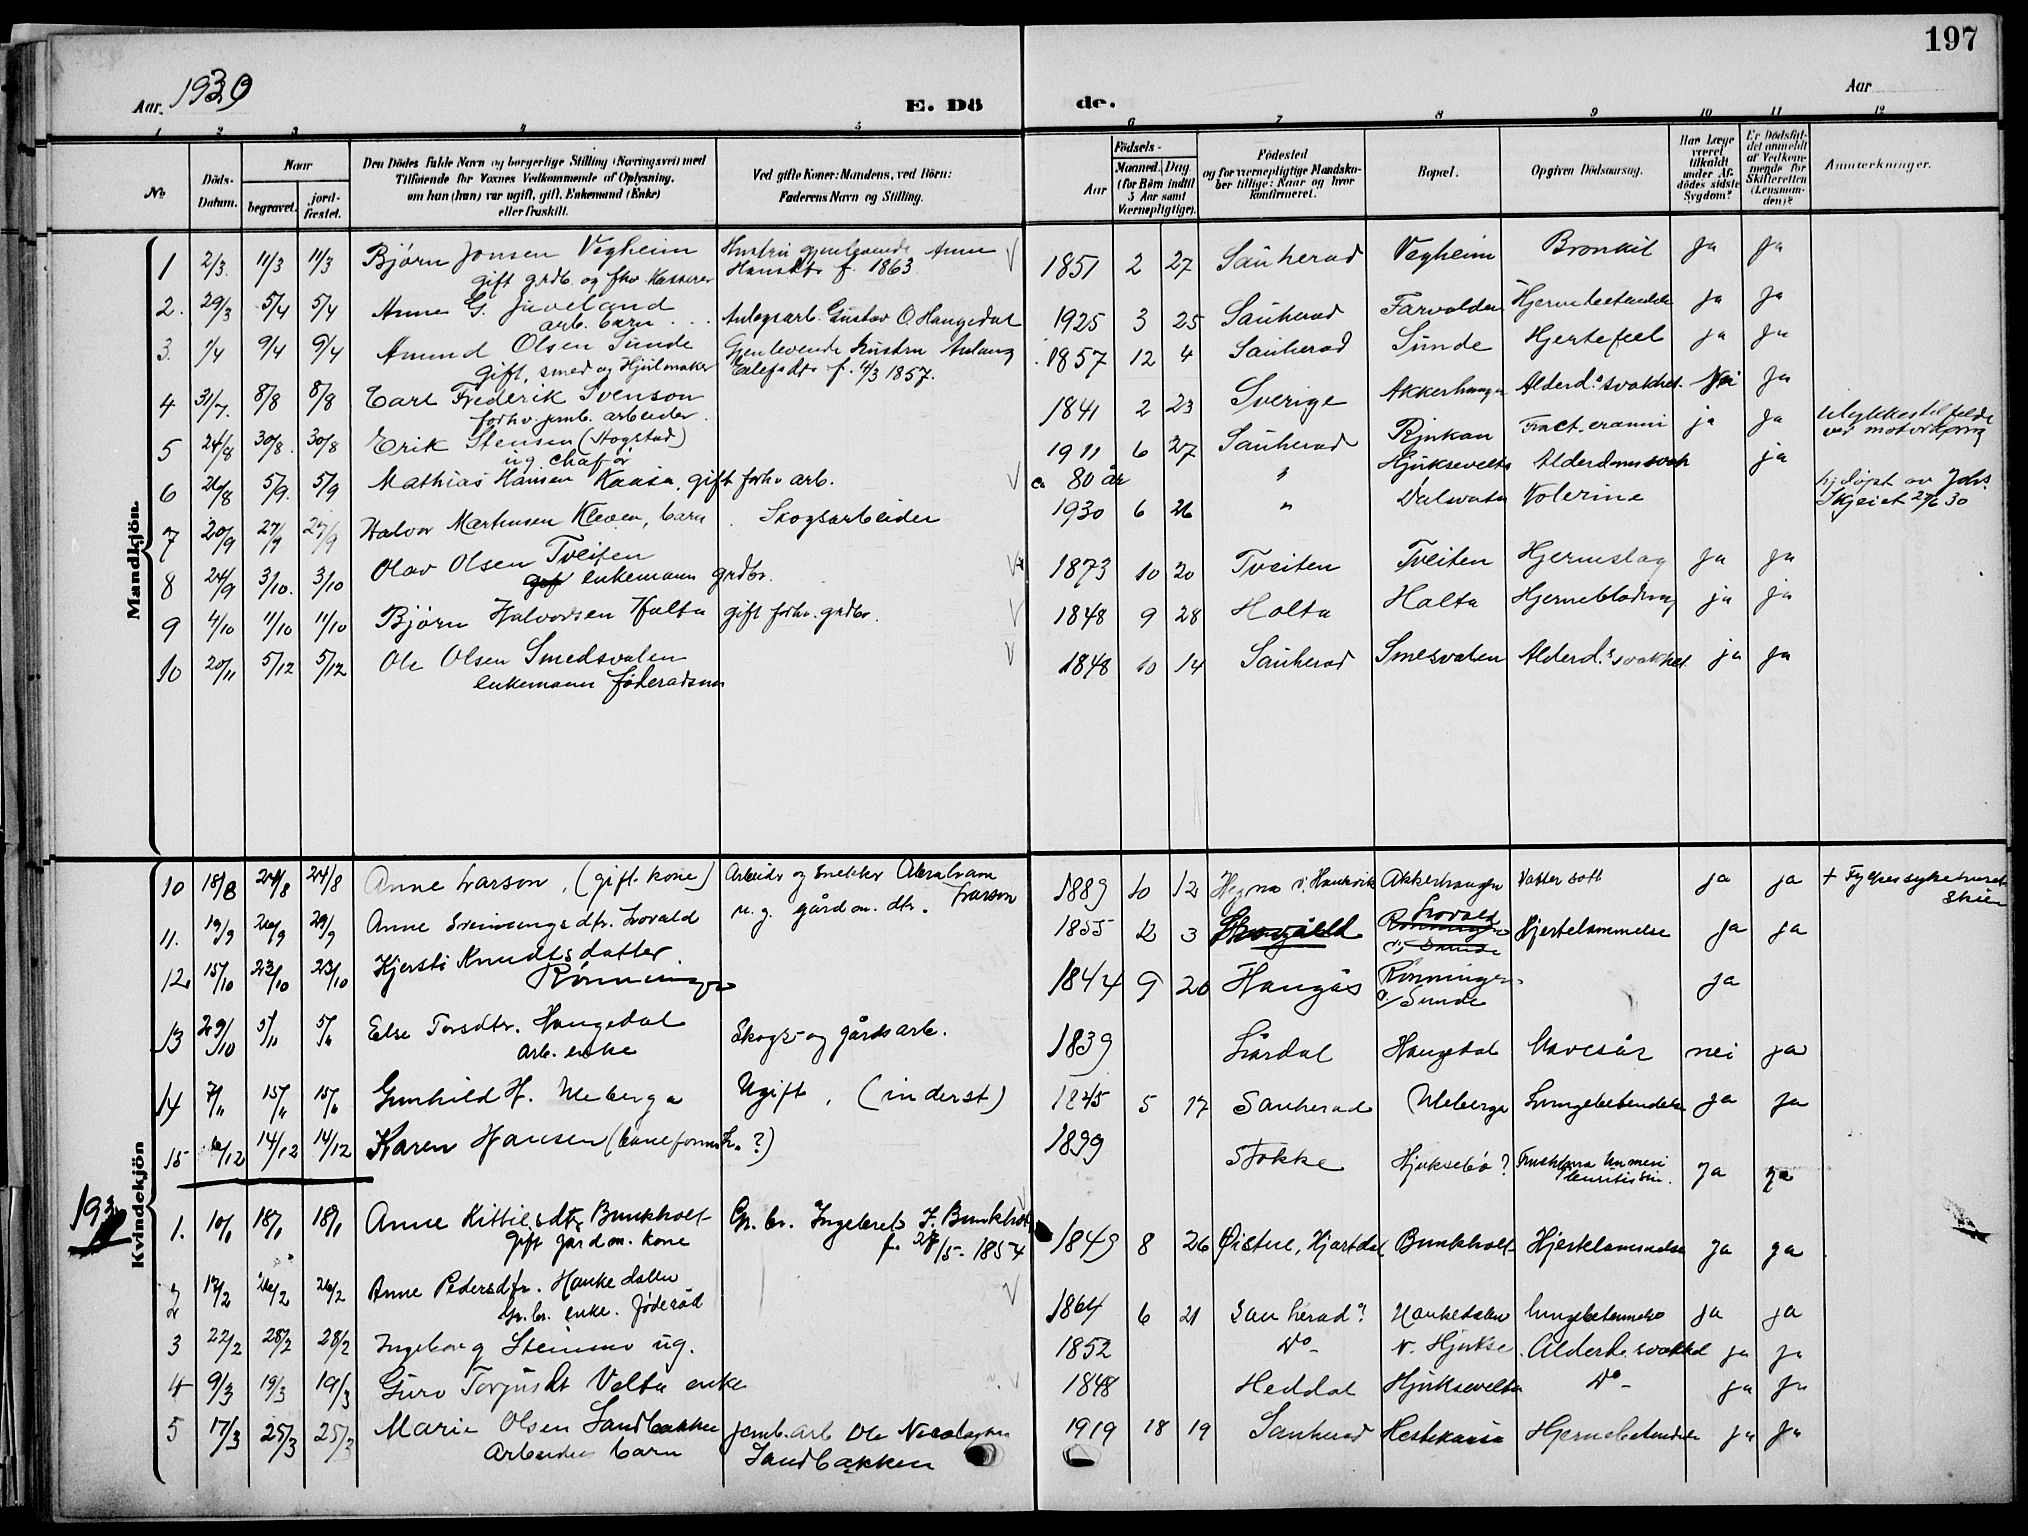 197
Aar 1930 E. Dö de. Aar
1 2 3 4 5 6 7 8 9 10 11 12
No. Döds-Datum. Naar begravet. jordfæstet. Den Dödes fulde Navn og borgerlige Stilling (Næringsvei) med Tilföiende for Voxnes Vedkommende af Oplysning, om han (hun) var ugift, gift, Enkemand (Enke) eller fraskilt. Ved gifte Koner: Mandens, ved Börn: Faderens Navn og Stilling. Födsels- Aar Maaned. Dag. (for Börn indtil 5 Aar samt Værnepligtige). Födested og for værnepligtige Mandskaber tillige: Naar og hvor konfirmeret. Bopæl. Opgiven Dödsaarsag. Har Læge været tilkaldt under Afdödes sidste Sygdom? Er Dödsfaldet anmeldt af Vedkommende for Skifteretten (Lensmanden)? Anmærkninger.
Mandkjön.
1 2/3 11/3 11/3 Bjørn Jonsen Vegheim Hustru gjenlevende Anne 1851 2 27 Sauherad Vegheim Bronkit ja ja
gift grdb. og fhv Kasserer Hansdtr f. 1863
2. 29/3 5/4 5/4 Anne G. Juveland Anlegsarb. Gustav O. Haugedal 1925 3 25 Sauherad Farvolden Hjernebetendelse ja ja
arb. barn
3. 1/4 9/4 9/4 Amund Olsen Sunde Gjenlevende hustru 1857 12 4 Sauherad Sunde Hjertefeil ja ja
gift, smed og Hjulmaker f. 4/3 1857.
4 31/7. 8/8 8/8 Carl Frederik Svenson 1841 2 23 Sverige Akkerhaugen Alderd.s svakhet Nei ja
forhv. jernb. arbeider
5 24/8 30/8. 30/8 Erik Stensen (Hogstad) 1911 6 27 Sauherad Rjukan Fract. cranii ja ja Ulykkestilfelde
ug. chafør ved motorkjøring
6 26/8 5/9. 5/9 Mathias Hansen Kaasa, gift forhv arb. ca 80 år " Hjuksevelta Alderdomssvak ja
7 20/9 27/9 27/9 Halvor Martinsen Kleven, barn Skogsarbeider 1930 6 26 " Dalsvatn Kolerine hj.døpt av Johs. Skjeiet 27/6 30
8 24/9 3/10. 3/10 Olav Olsen Tveiten 1873 10 20 Tveiten Tveiten Hjerneslag ja ja
gift enkemann grdbr.
9 4/10 11/10 11/10 Bjørn Halvorsen Holta gift forhv. grdbr. 1848 9 28 Holta Holta Hjerneblødning ja ja
10 20/11 5/12 5/12 Ole Olsen Smedsvalen 1848 10 14 Sauherad Smesvalen Alderd.s svakhet ja ja
enkemann føderadsm
Kvindekjön
10 18/8 24/8 24/8 Anne Larson, (gift kone) Arbeider og snekker Abraham Larson 1889 10 12 Akkerhaugen Vattersott ja ja + Fylkessykehuset Skien
11. 19/9 26/9 29/9 Anne Sveinungsdtr. Lovald u. g. gårdm. dtr. 1855 12 3 Lovald Hjertelammelse ja ja
12. 15/10 23/10 23/10 Kjersti Knudtsdatter 1844 9 20 Haugås Rønningen ja
Rønningen u/ Sunde
13 29/10 5/11 5/11 Else Torsdtr. Haugedal Skogs- og gårdsarb. 1839 Lårdal Haugedal Mavesår nei ja
arb. enke
14 7/11 15/11 15/11 Gunhild H. Uleberga Ugift, (inderst) 1845 5 17 Sauherad Uleberga Lungebetendelse ja ja
15 14/12 14/12 Karen Hansen ( ?) 1899 Stokke Hjuksebø? ja ja
193
1. 10/1 18/1 18/1 Anne Kittilsdtr Bunkholt Gr. br. Ingebret J. Bunkholt 1849 8 26 Øisteul, Hjartdal Bunkholt Hjertelammelse ja ja
gift gårdm. kone f. 28/5- 1854
2 17/2 26/2 26/2 Anne Pedersdtr. Haukedalen 1864 6 21 Sauherad? Haukedalen Lungebetennelse ja ja
Gr. br. enke. føderåd
3 22/2 28/2 28/2 Ingeborg Steinmo ug. 1852 Do- N. Hjukse Alderd. svakhet ja ja
4 9/3 19/3 19/3 Guro Torjusdt Velta enke 1848 Heddal Hjuksevelta Do- ja ja
5 17/3 25/3 25/3 Marie Olsen Sandbakken jernb. arb Ole Nicolaysen 1919 18 19 Sauherad Hestekaasa Hjernebetendelse ja ja
Arbeiders barn Sandbakken